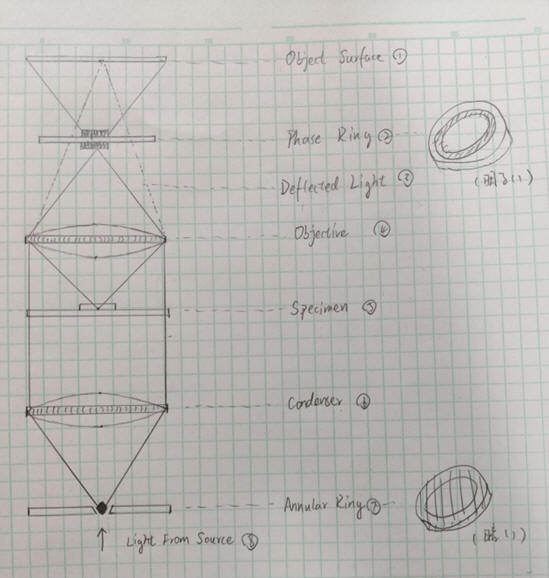 Object Surface ①
Phase Ring ②
(明るい)
Deflected Light ③
Objective ④
Specimen ⑤
Condenser ⑥
Annular Ring ⑦
(暗い)
Light From Source ⑧